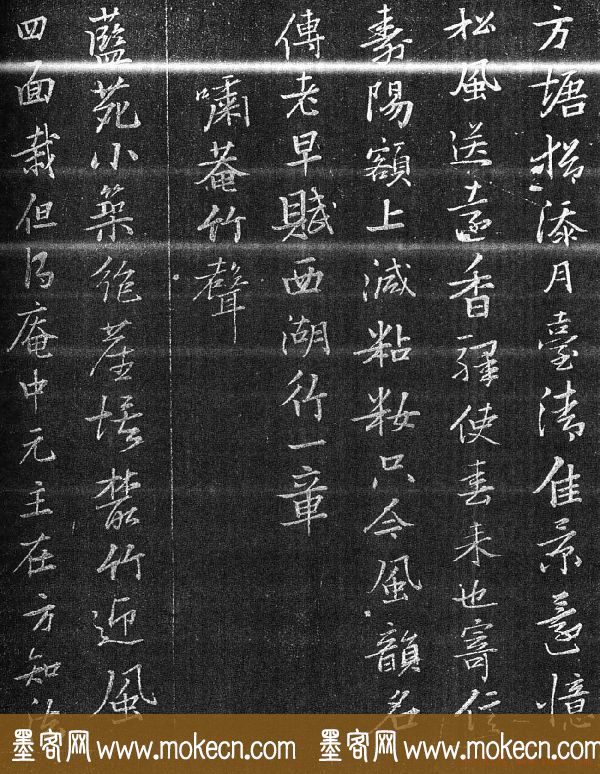 方塘摇漾月臺清佳景還憶
松風送遠香驛使春来也寄信
壽陽額上減粘妆只今風韻名
傳老早賦西湖行一章
嘯菴竹聲
藍苑小築絶塵埃叢竹迎風
四面栽但得庵中元主在方知
墨客网 www.mokecn.com 墨客网 www.mokecn.com